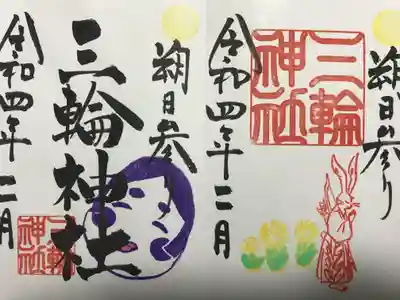 朔日参り
三輪
神社
令和四年二月
朔日参り
三輪神社
三輪
神社
令和四年二月